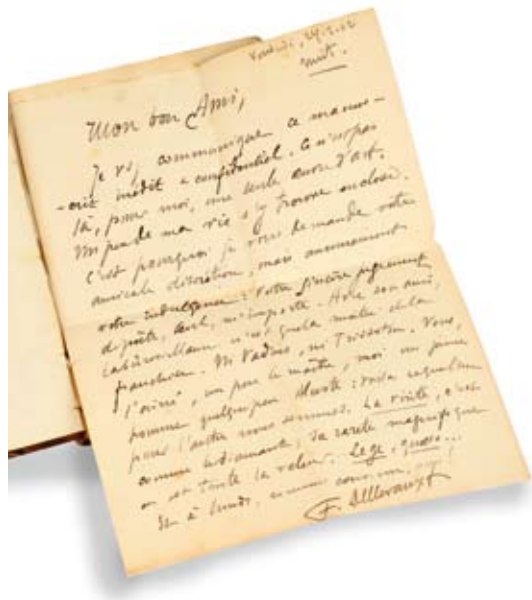 24.2.12
nuit.
Mon bon Ami,
Je vs communique ce manus-
-crit inédit & confidentiel. Ce n'est pas
là, pour moi, une seule œuvre d'art.
Un peu de ma vie s'y trouve enclose.
C'est pourquoi je vous demande votre
amicale discrétion, mais aucunement
votre indulgence : votre sincère jugement
de poète, seul, m'importe. son ami,
n'est que la moitié de la
franchise. Ni Vadius, ni Trissotin. Vous,
l'aîné, un peu le maître, moi un jeune
homme quelque peu Alceste : voilà
pour l'autre nous sommes. La vérité, c'est
comme le diamant : sa rareté magnifique
en est toute la valeur. Lege, quæso...
à lundi, comme convenu,